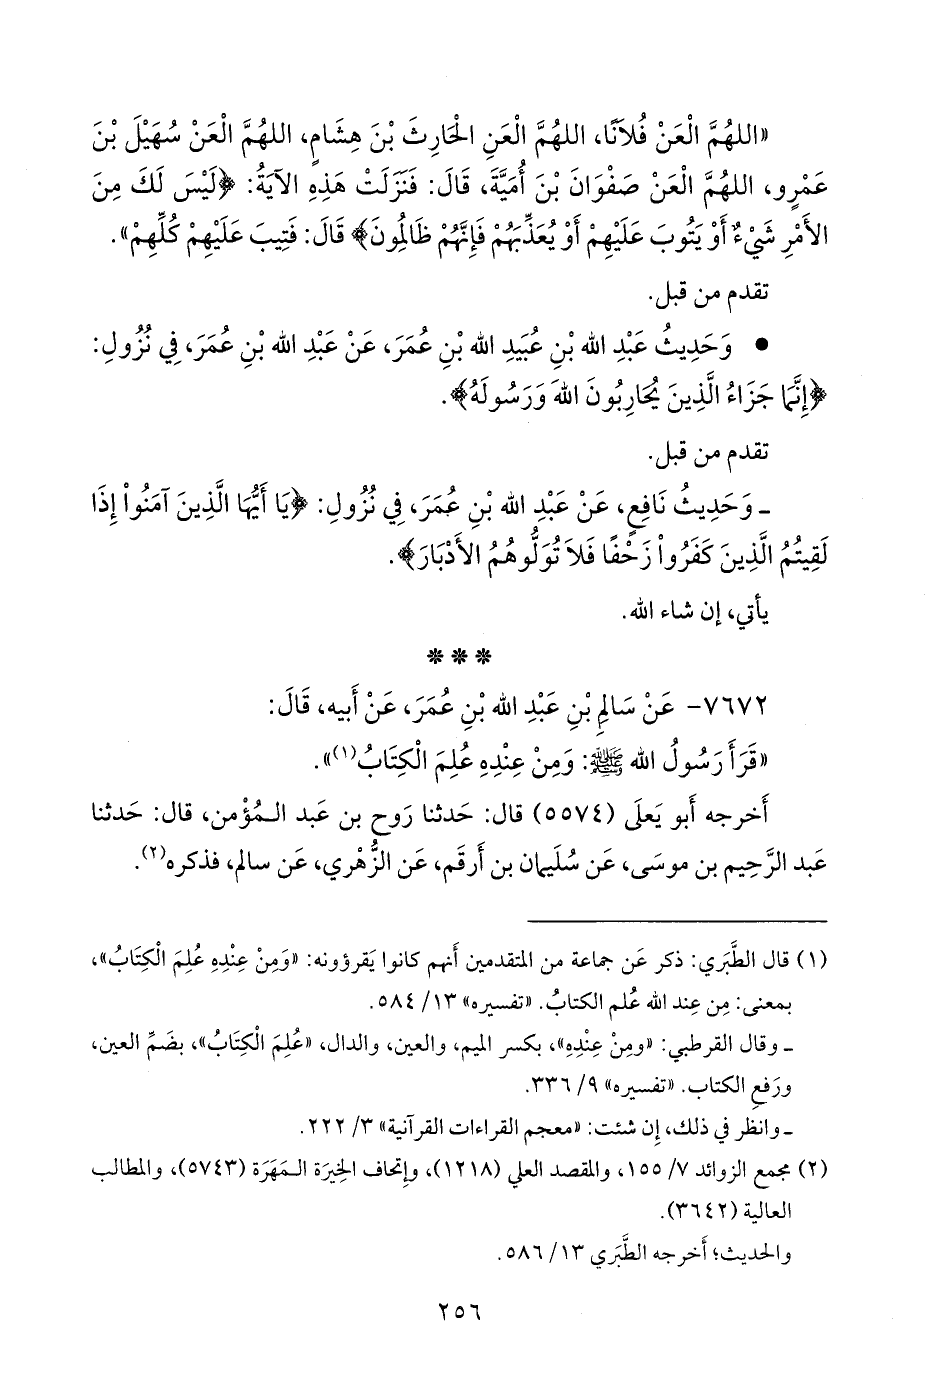 «اللهُمَّ الْعَنْ فُلاَنًا، اللهُمَّ الْعَنِ الْحَارِثَ بْنَ هِشَامٍ، اللهُمَّ الْعَنْ سُهَيْلَ بْنَ
عَمْرٍو، اللهُمَّ الْعَنْ صَفْوَانَ بْنَ أُمَيَّةَ، قَالَ: فَنَزَلَتْ هَذِهِ الآيَةُ: ﴿لَيْسَ لَكَ مِنَ
الأَمْرِ شَيْءٌ أَوْ يَتُوبَ عَلَيْهِمْ أَوْ يُعَذِّبَهُمْ فَإِنَّهُمْ ظَالِمُونَ﴾ قَالَ: فَتِيبَ عَلَيْهِمْ كُلِّهِمْ».
تقدم من قبل.
• وَحَدِيثُ عَبْدِ الله بْنِ عُبَيدِ الله بْنِ عُمَرَ، عَنْ عَبْدِ الله بْنِ عُمَرَ، فِي نُزُولِ:
﴿إِنَّمَا جَزَاءُ الَّذِينَ يُحَارِبُونَ اللهَ وَرَسُولَهُ﴾.
تقدم من قبل.
ـ وَحَدِيثُ نَافِعٍ، عَنْ عَبْدِ الله بْنِ عُمَرَ، فِي نُزُولِ: ﴿يَا أَيُّهَا الَّذِينَ آمَنُواْ إِذَا
لَقِيتُمُ الَّذِينَ كَفَرُواْ زَحْفًا فَلاَ تُوَلُّوهُمُ الأَدْبَارَ﴾.
يأتي، إن شاء الله.
***
٧٦٧٢- عَنْ سَالِمِ بْنِ عَبْدِ الله بْنِ عُمَرَ، عَنْ أَبيه، قَالَ:
«قَرَأَ رَسُولُ الله ﷺ: وَمِنْ عِنْدِهِ عُلِمَ الْكِتَابُ(١)».
أَخرجه أَبو يَعلَى (٥٥٧٤) قال: حَدثنا رَوح بن عَبد الـمُؤْمن، قال: حَدثنا
عَبد الرَّحِيم بن موسَى، عَن سُليمان بن أَرقَم، عَن الزُّهْري، عَن سالم، فذكره(٢).
(١) قال الطَّبَري: ذكر عَن جماعة من المتقدمين أَنهم كانوا يَقرؤونه: «وَمِنْ عِنْدِهِ عُلِمَ الْكِتَابُ»،
بمعنى: مِن عِند الله عُلم الكتابُ. «تفسيره» ١٣/ ٥٨٤.
ـ وقال القرطبي: «ومِنْ عِنْدِهِ»، بكسر الميم، والعين، والدال، «عُلِمَ الْكِتَابُ»، بضَمِّ العين،
ورَفعِ الكتاب. «تفسيره» ٩/ ٣٣٦.
ـ وانظر في ذلك، إِن شئت: «معجم القراءات القرآنية» ٣/ ٢٢٢.
(٢) مجمع الزوائد ٧/ ١٥٥، والمقصد العلي (١٢١٨)، وإتحاف الخِيرَة الـمَهَرَة (٥٧٤٣)، والمطالب
العالية (٣٦٤٢).
والحديث؛ أَخرجه الطَّبَري ١٣/ ٥٨٦.
٢٥٦